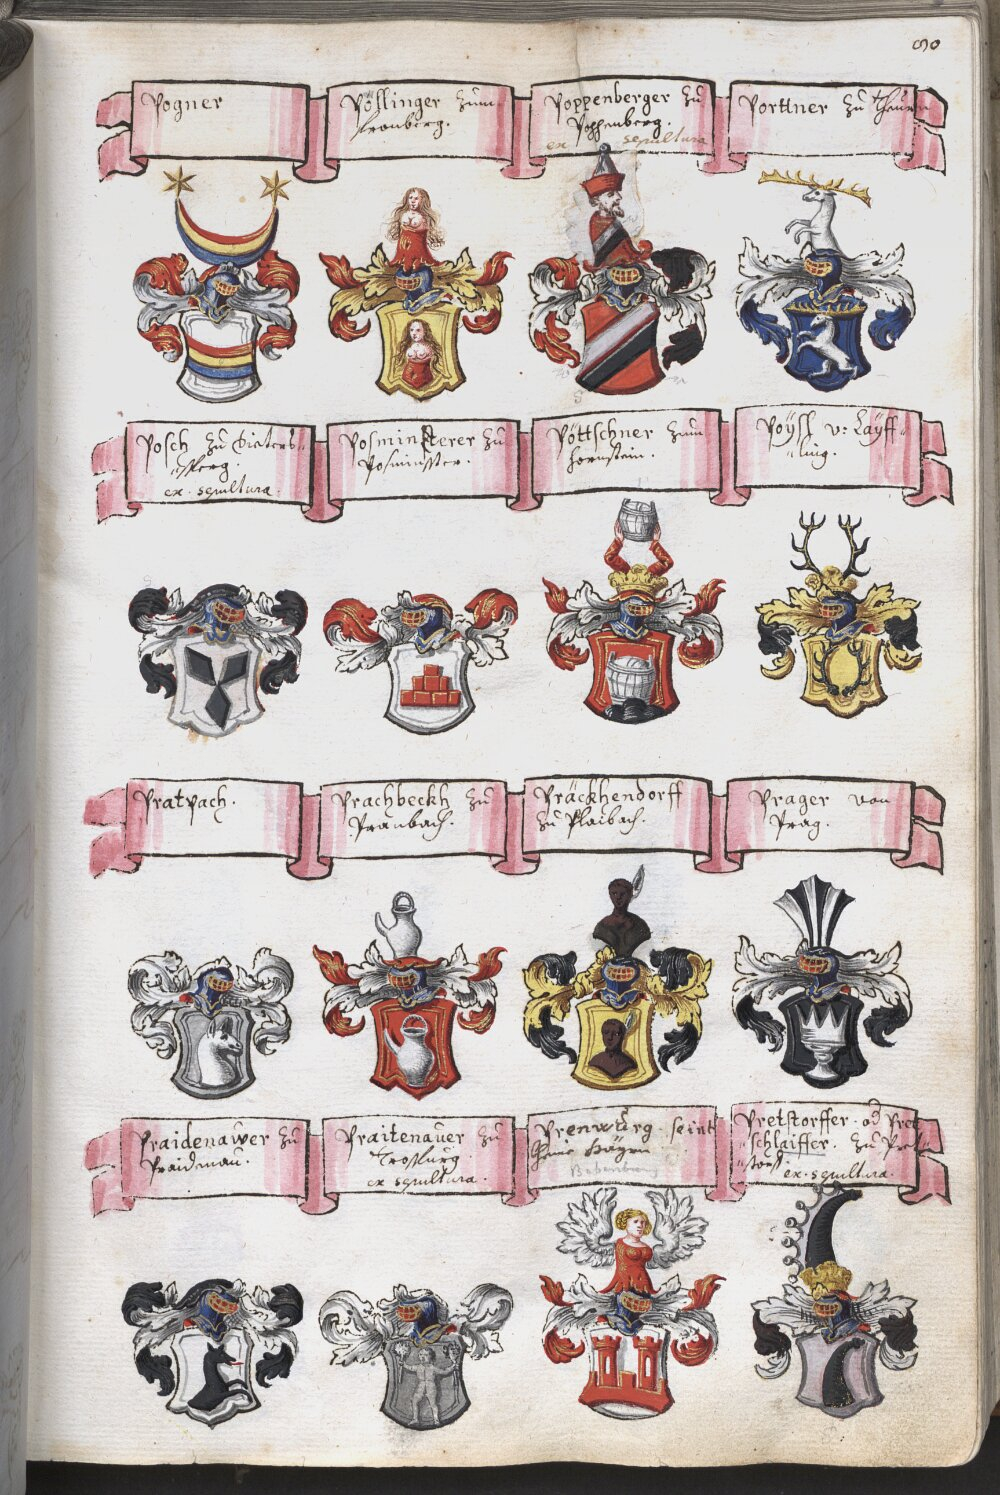 90
Pogner
Pöslinger zum
Kronberg.
Poppenberger zu
Poppenberg.
ex sepultura
Porttner zu Theurn
Posch zu
ex. sepultura.
Posminsterer zu
Posminster.
Pöttschner zum
Hornstein.
Poysl v: Layff-
-ling.
Pratpach.
Prachbeckh zu
Pranbach.
Präckhendorff
zu Plaibach.
Prager von
Prag.
Praidenawer zu
Praidenau.
Praitenauer zu
Trosburg
ex sepultura.
Prennburg.
Babenberg
Pretstorffer. od Pret
-schlaiffer. zu Pret-
-storff ex. sepultura.